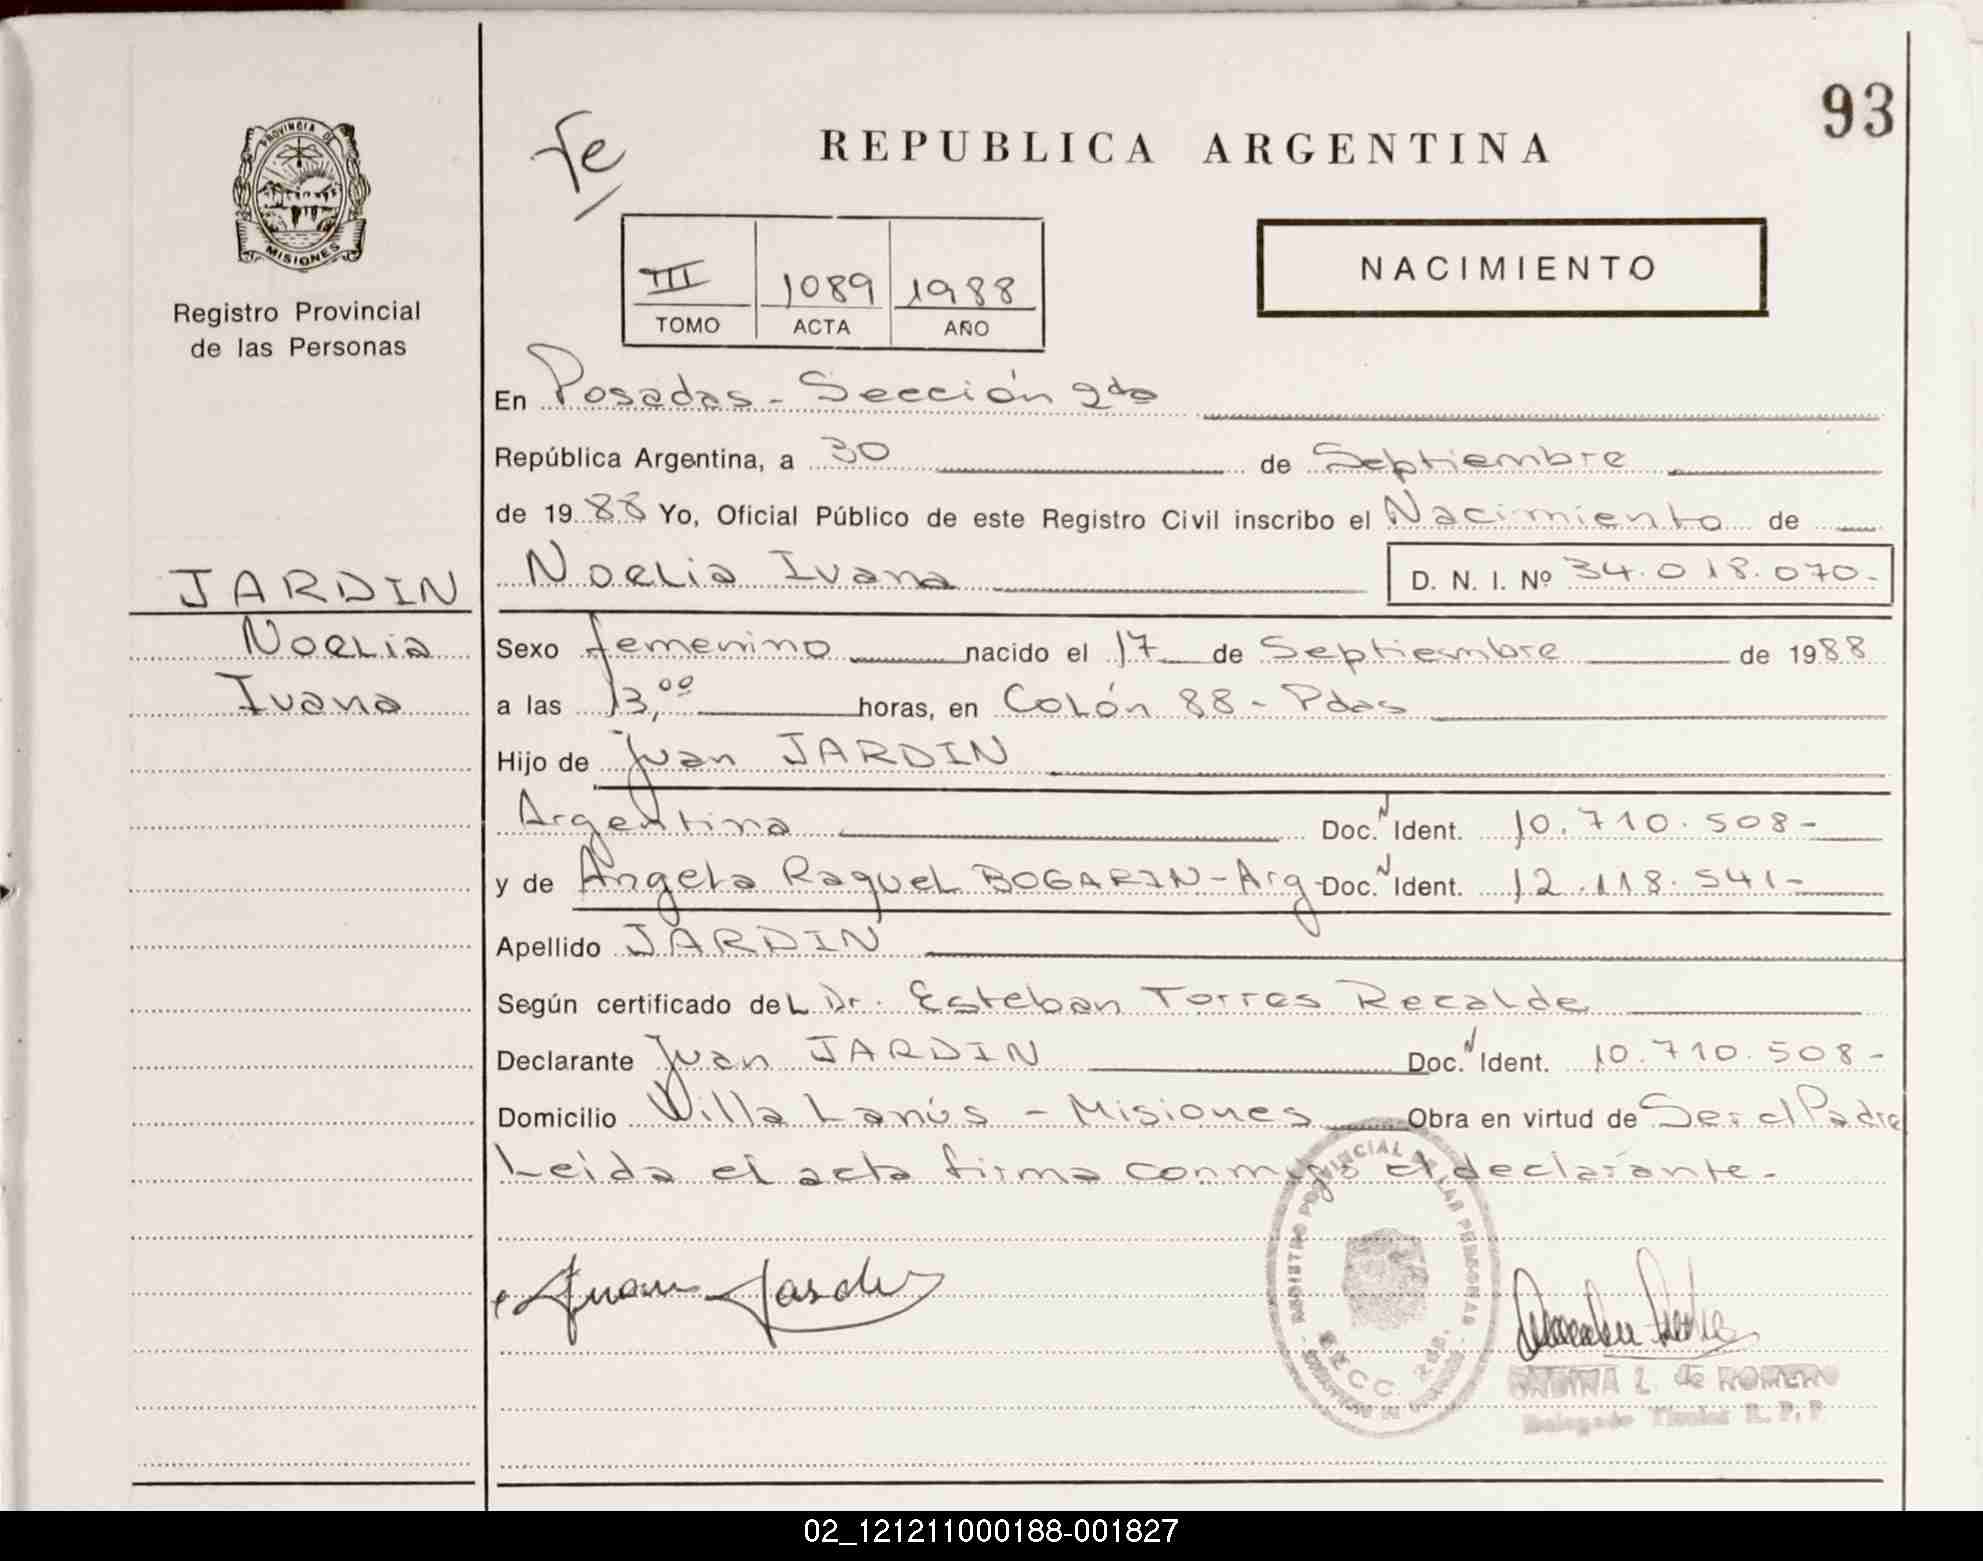 93
REPUBLICA ARGENTINA
Fe
PROVINCIA DE
MISIONES
Registro Provincial
de las Personas
III 1089 1988
TOMO ACTA AÑO
NACIMIENTO
En Posadas - Sección 2da
República Argentina, a 30 de Septiembre
de 1988 Yo, Oficial Público de este Registro Civil inscribo el Nacimiento de
JARDIN
Noelia
Ivana
Noelia Ivana D. N. I. Nº 34.018.070.-
Sexo femenino nacido el 17 de Septiembre de 1988
a las 13,00 horas, en Colón 88 - Pdas
Hijo de Juan JARDIN
Argentina Doc. N Ident. 10.710.508-
y de Angela Raquel BOGARIN - Arg - Doc. N Ident. 12.118.541-
Apellido JARDIN
Según certificado del Dr. Esteban Torres Recalde
Declarante Juan JARDIN Doc. N Ident. 10.710.508-
Domicilio Villa Lanús - Misiones Obra en virtud de Ser el Padre
Leida el acta firma conmigo el declarante.-
Juan Jardin
REGISTRO PROVINCIAL DE LAS PERSONAS
SECC. 2da.
L. de ROMERO
Delegado Titular R. P. P
02_121211000188-001827